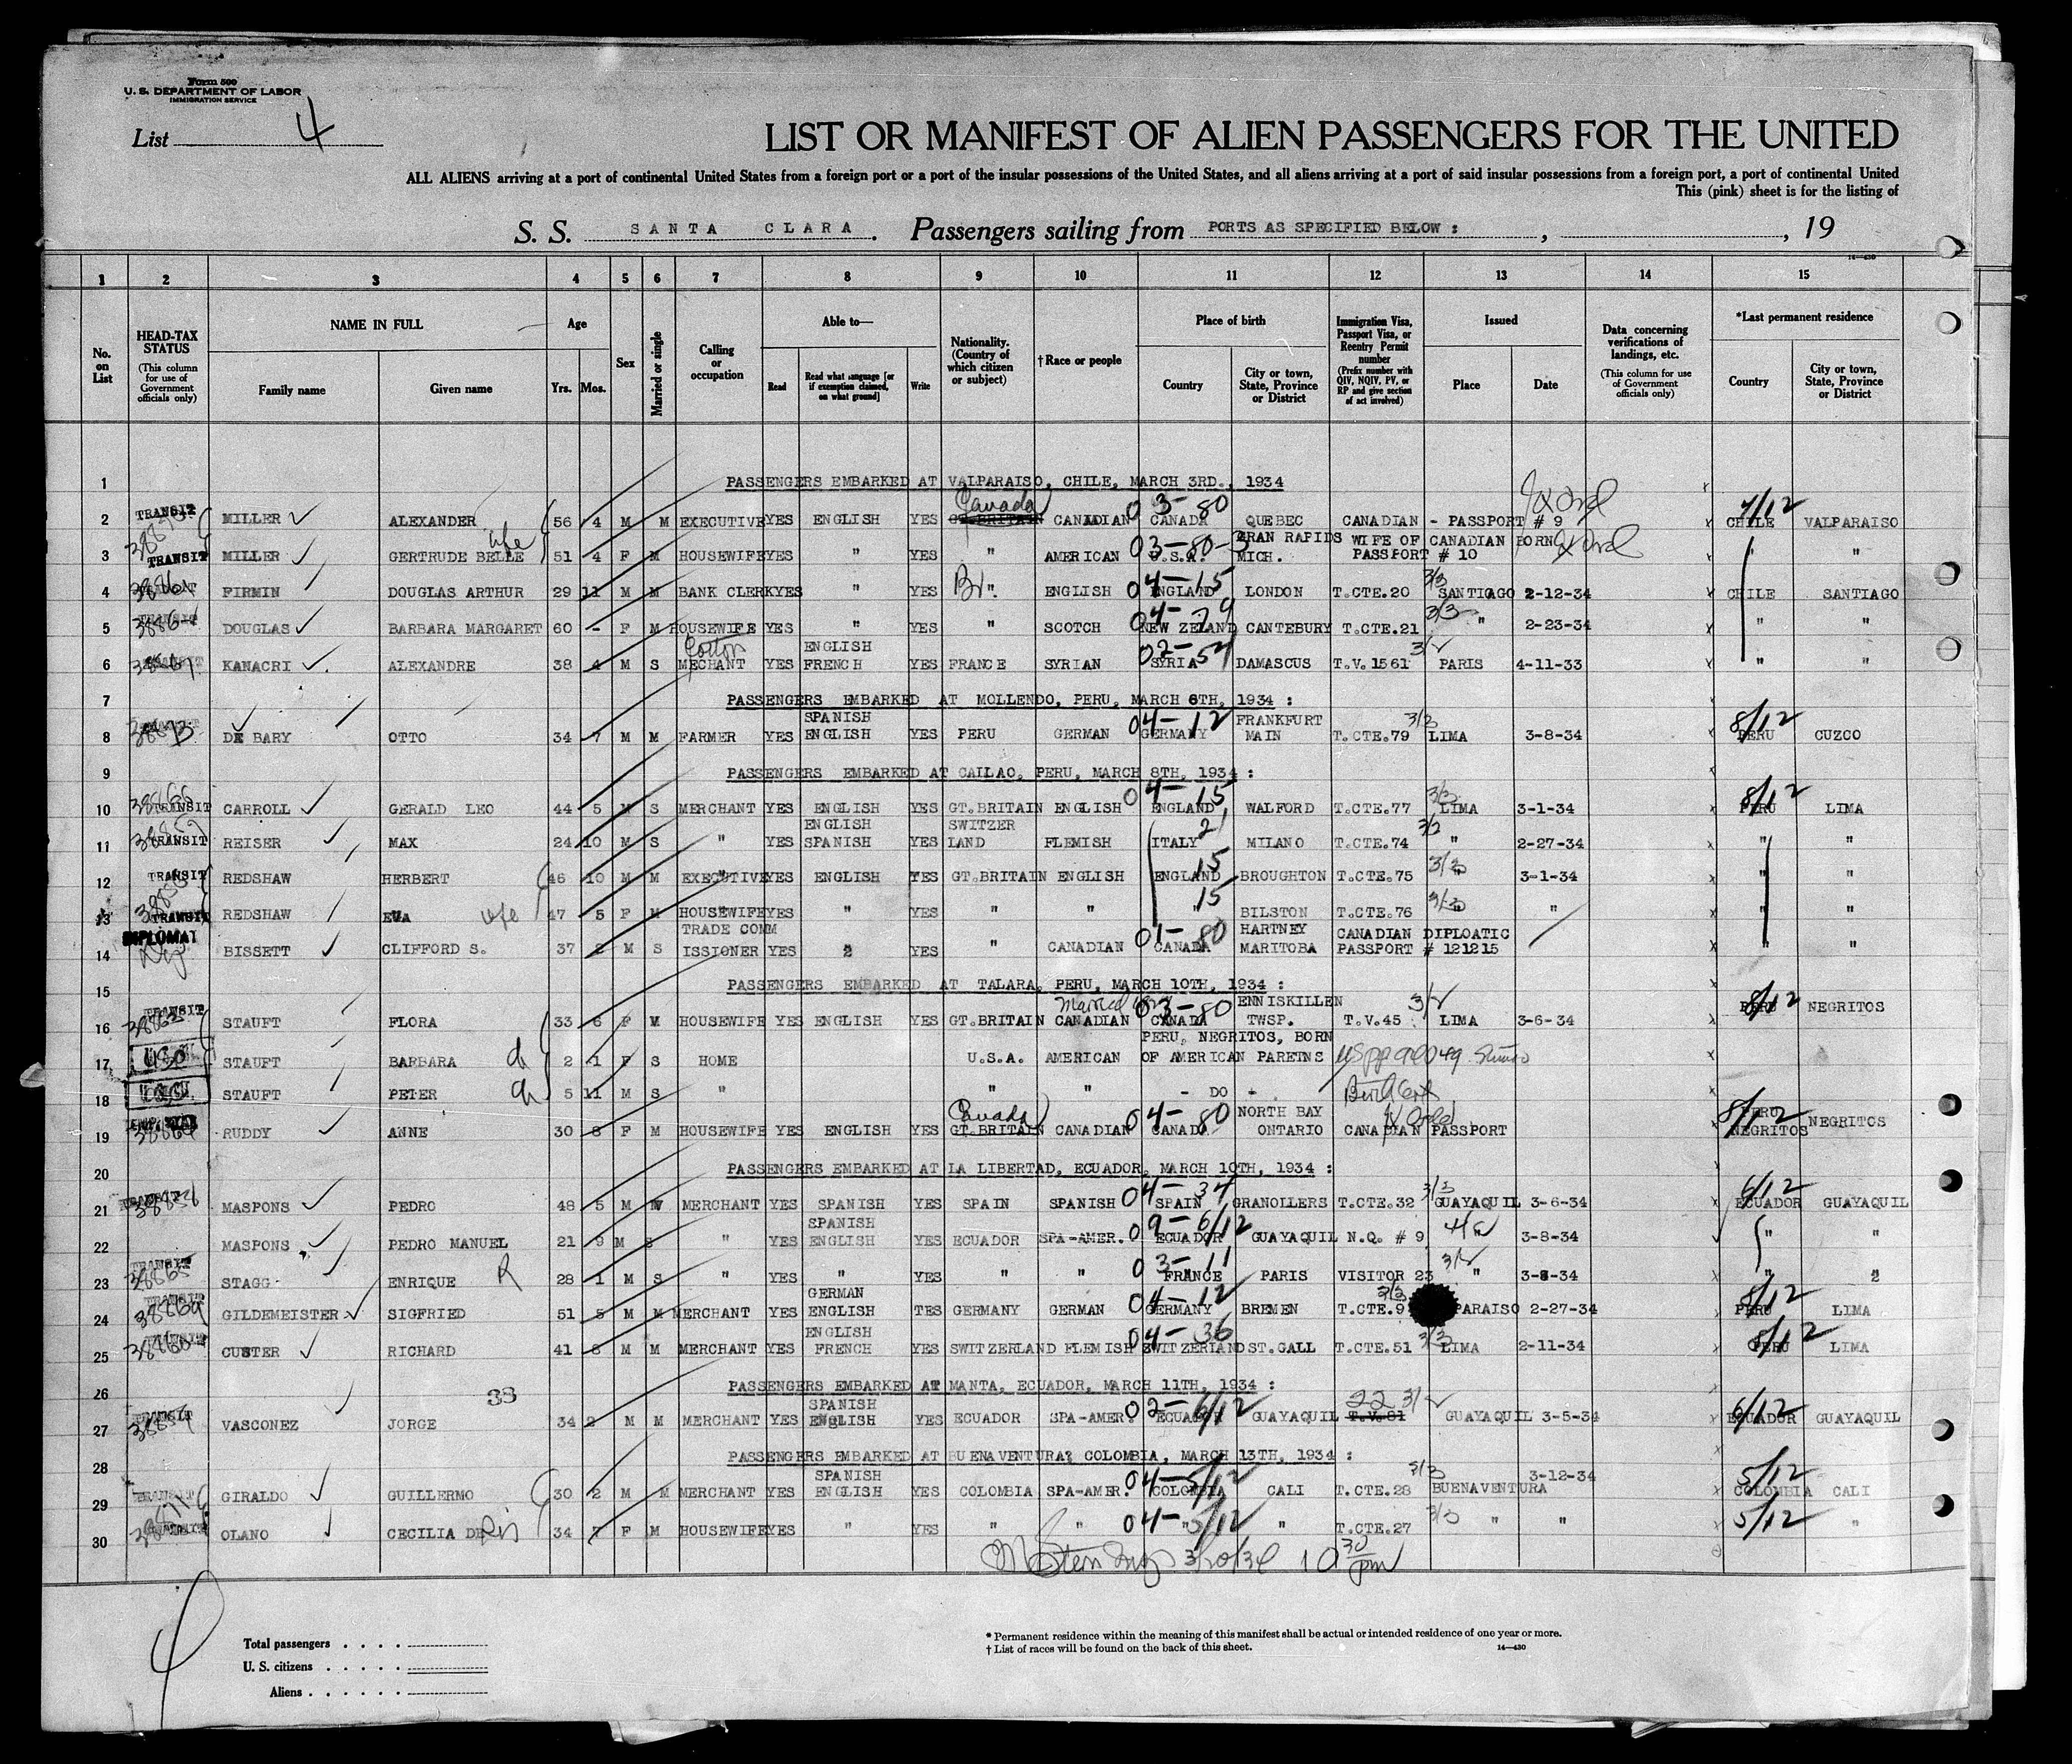 Form 500
U. S. DEPARTMENT OF LABOR
IMMIGRATION SERVICE
List 4
LIST OR MANIFEST OF ALIEN PASSENGERS FOR THE UNITED
ALL ALIENS arriving at a port of continental United States from a foreign port or a port of the insular possessions of the United States, and all aliens arriving at a port of said insular possessions from a foreign port, a port of continental United
This (pink) sheet is for the listing of
S. S. SANTA CLARA. Passengers sailing from PORTS AS SPECIFIED BELOW : , , 19
14—430
1 2 3 4 5 6 7 8 9 10 11 12 13 14 15
No. on List
HEAD-TAX STATUS
(This column for use of Government officials only)
NAME IN FULL
Family name Given name
Age
Yrs. Mos.
Sex
Married or single
Calling or occupation
Able to—
Read
Read what language [or if exemption claimed, on what ground]
Write
Nationality. (Country of which citizen or subject)
†Race or people
Place of birth
Country
City or town, State, Province or District
Immigration Visa, Passport Visa, or Reentry Permit number
(Prefix number with QIV, NQIV, PV, or RP and give section of act involved)
Issued
Place Date
Data concerning verifications of landings, etc.
(This column for use of Government officials only)
*Last permanent residence
Country
City or town, State, Province or District
1 PASSENGERS EMBARKED AT VALPARAISO, CHILE, MARCH 3RD., 1934
Canada 03-80 7/12
2 TRANSIT MILLER ALEXANDER 56 4 M M EXECUTIVE YES ENGLISH YES GT.BRITAIN CANADIAN CANADA QUEBEC CANADIAN - PASSPORT # 9 CHILE VALPARAISO
wife 03-80-3 GRAN RAPIDS WIFE OF CANADIAN BORN
3 TRANSIT MILLER GERTRUDE BELLE 51 4 F M HOUSEWIFE YES " YES " AMERICAN U.S.A. MICH. PASSPORT # 10 " "
Br 04-15 3/3
4 FIRMIN DOUGLAS ARTHUR 29 11 M M BANK CLERK YES " YES " ENGLISH ENGLAND LONDON T.CTE.20 SANTIAGO 2-12-34 CHILE SANTIAGO
3/3
5 DOUGLAS BARBARA MARGARET 60 - F M HOUSEWIFE YES " YES " SCOTCH NEW ZELAND CANTEBURY T.CTE.21 " 2-23-34 " "
Cotton ENGLISH
6 KANACRI ALEXANDRE 38 4 M S MECHANT YES FRENCH YES FRANCE SYRIAN SYRIA DAMASCUS T.V.1561 PARIS 4-11-33 " "
7 PASSENGERS EMBARKED AT MOLLENDO, PERU, MARCH 6TH, 1934 :
SPANISH 04-12 FRANKFURT 3/3 8/12
8 DE BARY OTTO 34 7 M M FARMER YES ENGLISH YES PERU GERMAN GERMANY MAIN T.CTE.79 LIMA 3-8-34 PERU CUZCO
9 PASSENGERS EMBARKED AT CAILAO, PERU, MARCH 8TH, 1934 :
04-15 3/3 8/12
10 TRANSIT CARROLL GERALD LEO 44 5 M S MERCHANT YES ENGLISH YES GT.BRITAIN ENGLISH ENGLAND WALFORD T.CTE.77 LIMA 3-1-34 PERU LIMA
ENGLISH SWITZER 21
11 TRANSIT REISER MAX 24 10 M S " YES SPANISH YES LAND FLEMISH ITALY MILANO T.CTE.74 " 2-27-34 " "
15 3/3
12 TRANSIT REDSHAW HERBERT 46 10 M M EXECUTIVE YES ENGLISH YES GT.BRITAIN ENGLISH ENGLAND BROUGHTON T.CTE.75 " 3-1-34 " "
wife 15 3/3
13 TRANSIT REDSHAW EVA 47 5 F M HOUSEWIFE YES " YES " " " BILSTON T.CTE.76 " " " "
DIPLOMAT TRADE COMM 01-80 HARTNEY CANADIAN DIPLOATIC
14 BISSETT CLIFFORD S. 37 2 M S ISSIONER YES 2 YES " CANADIAN CANADA MARITOBA PASSPORT # 121215 " "
15 PASSENGERS EMBARKED AT TALARA, PERU, MARCH 10TH, 1934 :
Married 03-80 ENNISKILLEN 8/12
16 TRANSIT STAUFT FLORA 33 6 F M HOUSEWIFE YES ENGLISH YES GT.BRITAIN CANADIAN CANADA TWSP. T.V.45 LIMA 3-6-34 PERU NEGRITOS
PERU, NEGRITOS, BORN
17 STAUFT BARBARA d 2 1 F S HOME U.S.A. AMERICAN OF AMERICAN PARETNS
18 STAUFT PETER 5 11 M S " " " - DO - Birth Cert
Canada 04-80 NORTH BAY PERU 8/12
19 RUDDY ANNE 30 8 F M HOUSEWIFE YES ENGLISH YES GT.BRITAIN CANADIAN CANADA ONTARIO CANADIAN PASSPORT NEGRITOS NEGRITOS
20 PASSENGERS EMBARKED AT LA LIBERTAD, ECUADOR, MARCH 10TH, 1934 :
04-34 3/3 6/12
21 MASPONS PEDRO 48 5 M W MERCHANT YES SPANISH YES SPAIN SPANISH SPAIN GRANOLLERS T.CTE.32 GUAYAQUIL 3-6-34 ECUADOR GUAYAQUIL
SPANISH 09-6/12
22 MASPONS PEDRO MANUEL 21 9 M S " YES ENGLISH YES ECUADOR SPA-AMER. ECUADOR GUAYAQUIL N.Q. # 9 " 3-8-34 " "
03-11
23 TRANSIT STAGG ENRIQUE R 28 1 M S " YES " YES " " FRANCE PARIS VISITOR 23 " 3-8-34 " 2
GERMAN 04-12 3/3 8/12
24 GILDEMEISTER SIGFRIED 51 5 M M MERCHANT YES ENGLISH TES GERMANY GERMAN GERMANY BREMEN T.CTE.9 PARAISO 2-27-34 PERU LIMA
ENGLISH 04-36 3/3 8/12
25 CUSTER RICHARD 41 8 M M MERCHANT YES FRENCH YES SWITZERLAND FLEMISH SWITZERLAND ST.GALL T.CTE.51 LIMA 2-11-34 PERU LIMA
26 PASSENGERS EMBARKED AT MANTA, ECUADOR, MARCH 11TH, 1934 :
38 SPANISH 02-6/12 22 6/12
27 VASCONEZ JORGE 34 2 M M MERCHANT YES ENGLISH YES ECUADOR SPA-AMER. ECUADOR GUAYAQUIL T.V.81 GUAYAQUIL 3-5-34 ECUADOR GUAYAQUIL
28 PASSENGERS EMBARKED AT BUENAVENTURA? COLOMBIA, MARCH 13TH, 1934 :
SPANISH 04-5/12 3/3 3-12-34 5/12
29 GIRALDO GUILLERMO 30 2 M M MERCHANT YES ENGLISH YES COLOMBIA SPA-AMER. COLOMBIA CALI T.CTE.28 BUENAVENTURA COLOMBIA CALI
04-5/12 3/3 5/12
30 OLANO CECILIA DE 34 7 F M HOUSEWIFE YES " YES " " " " T.CTE.27 " " "
3/20/34 10 30 pm
4
Total passengers . . . .
U. S. citizens . . . . .
Aliens . . . . . .
* Permanent residence within the meaning of this manifest shall be actual or intended residence of one year or more.
† List of races will be found on the back of this sheet. 14—430